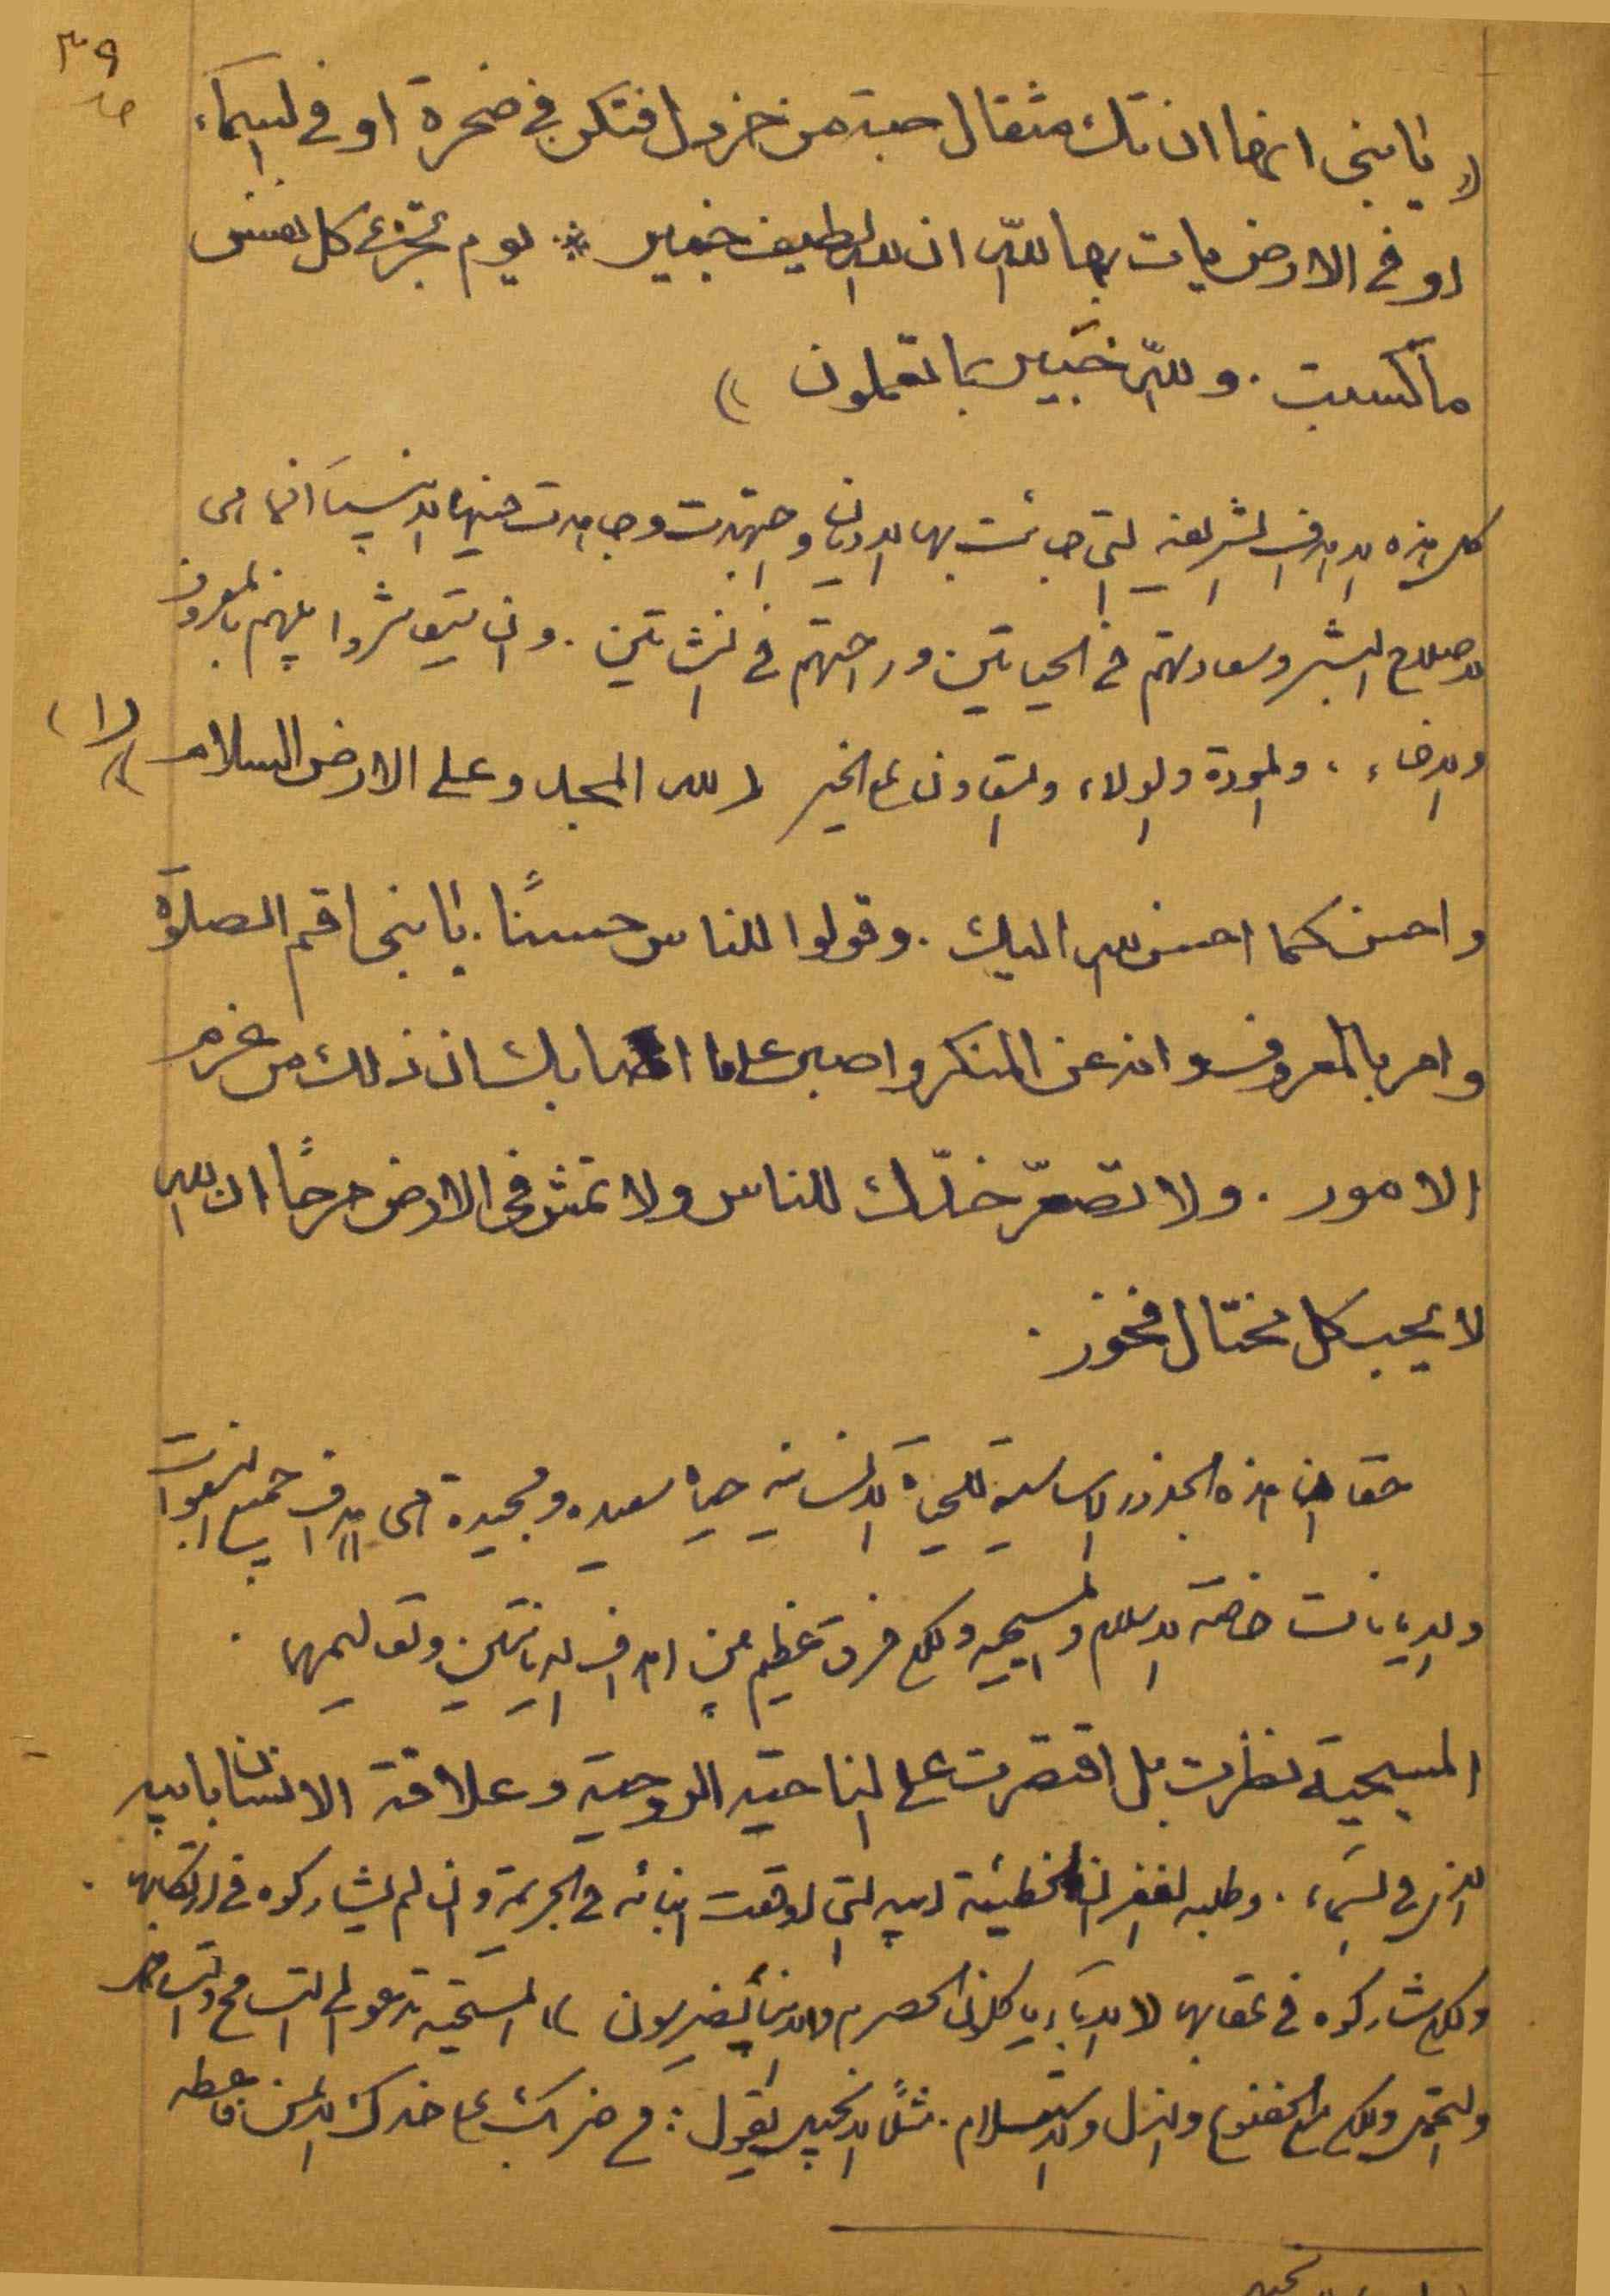 ٣٩
(( يا بنى انها ان تك مثقال حبة من خردل فتكن في صخرة او في السماء
او في الارض يات بها الله ان الله لطيف خبير * يوم تجزى كل نفس
ما كسبت . والله خبير بما تعملون ))
كل هذه الاهداف الشريفه التي جائت بها الاديان واجتهدت وجاهدت فيها الانبياء انما هي
لاصلاح البشر وسعادتهم في الحياتين وراحتهم في النشأتين . وان يتعاشروا بينهم بالمعروف
والاخاء ، والمودة والولاء ، والتعاون على الخير (( لله المجد وعلى الارض السلام )) (١)
واحسن كما احسن الله اليك . وقولوا للناس حسنًا . يا بنى اقم الصلوة
وامر بالمعروف وانه عن المنكر واصبر على ما اصابك ان ذلك من عزم
الامور . ولا تصعّر خدّك للناس ولا تمش في الارض مرحًا ان الله
لا يحب كل مختال فخور .
حقا ان هذه الجذور الاساسية للحياة الانسانيه حياة سعيده ومجيدة هي اهداف جميع النبوات
والديانات خاصة الاسلام والمسيحيه ولكن فرق عظيم بين اهداف الديانتين وتعاليمهما .
المسيحية نظرت بل اقتصرت على الناحية الروحية وعلاقة الانسان بابيه
الذي في السماء . وطلبه لغفران الخطيئة ابيه التي اوقعت ابنائه في الجريمة وان لم يشاركوه في ارتكابها .
ولكن شاركوه في عقابها (( الاباء ياكلون الحصرم والابناء يضرسون )) المسيحية تدعو الى التسامح والتساهل
والتحمل ولكن مع الخضوع والذل والاستسلام . مثلًا الانجيل يقول : من ضربك على خدك الايمن فاعطه